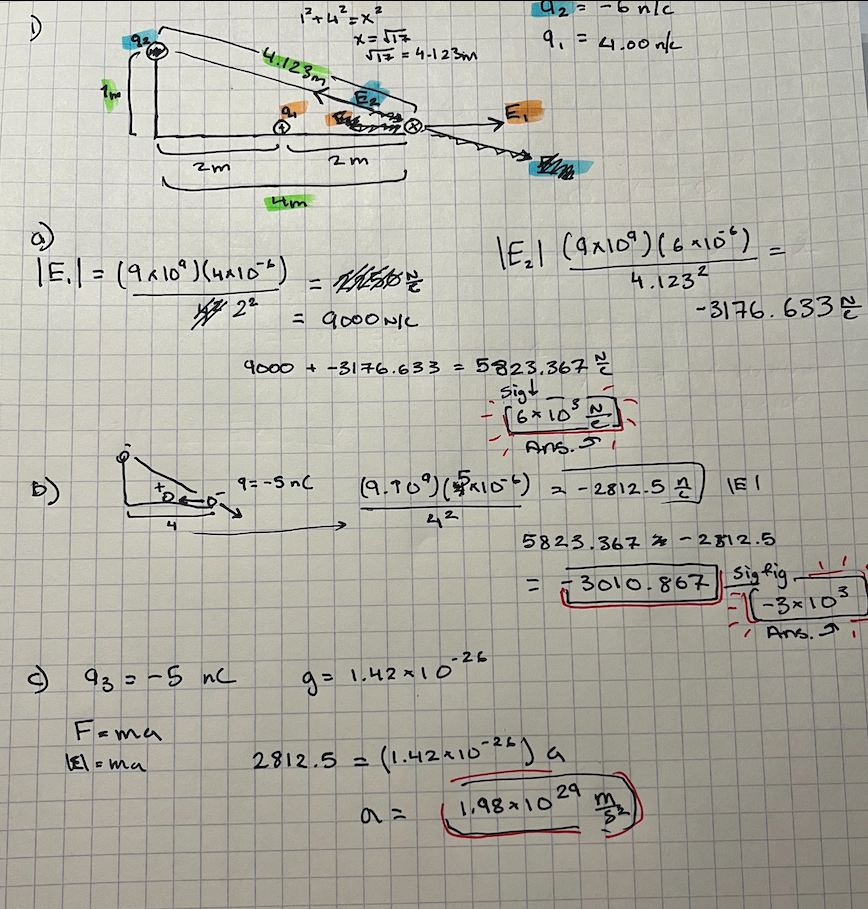 1)
1² + 4² = x²
x = √17
√17 = 4.123m
q₂ = -6 n/c
q₁ = 4.00 n/c
q₂
4.123m
1m
E₂
q₁
+
E₁
2m
2m
4m
a)
|E₁| = (9×10⁹)(4×10⁻⁶) / 2² =
= 9000 N/C
|E₂| (9×10⁹)(6×10⁻⁶) / 4.123² =
-3176.633 N/C
9000 + -3176.633 = 5823.367 N/C
Sig↓
[6×10³ N/C]
Ans.
b)
-
+
-
4
q = -5 nC
(9.10⁹)(5×10⁻⁶) / 4² = -2812.5 n/c |E|
5823.367 - 2812.5
= -3010.867
Sig fig
-3×10³
Ans.
c) q₃ = -5 nC g = 1.42×10⁻²⁶
F = ma
|E| = ma
2812.5 = (1.42×10⁻²⁶) a
a = 1.98×10²⁹ m/s²